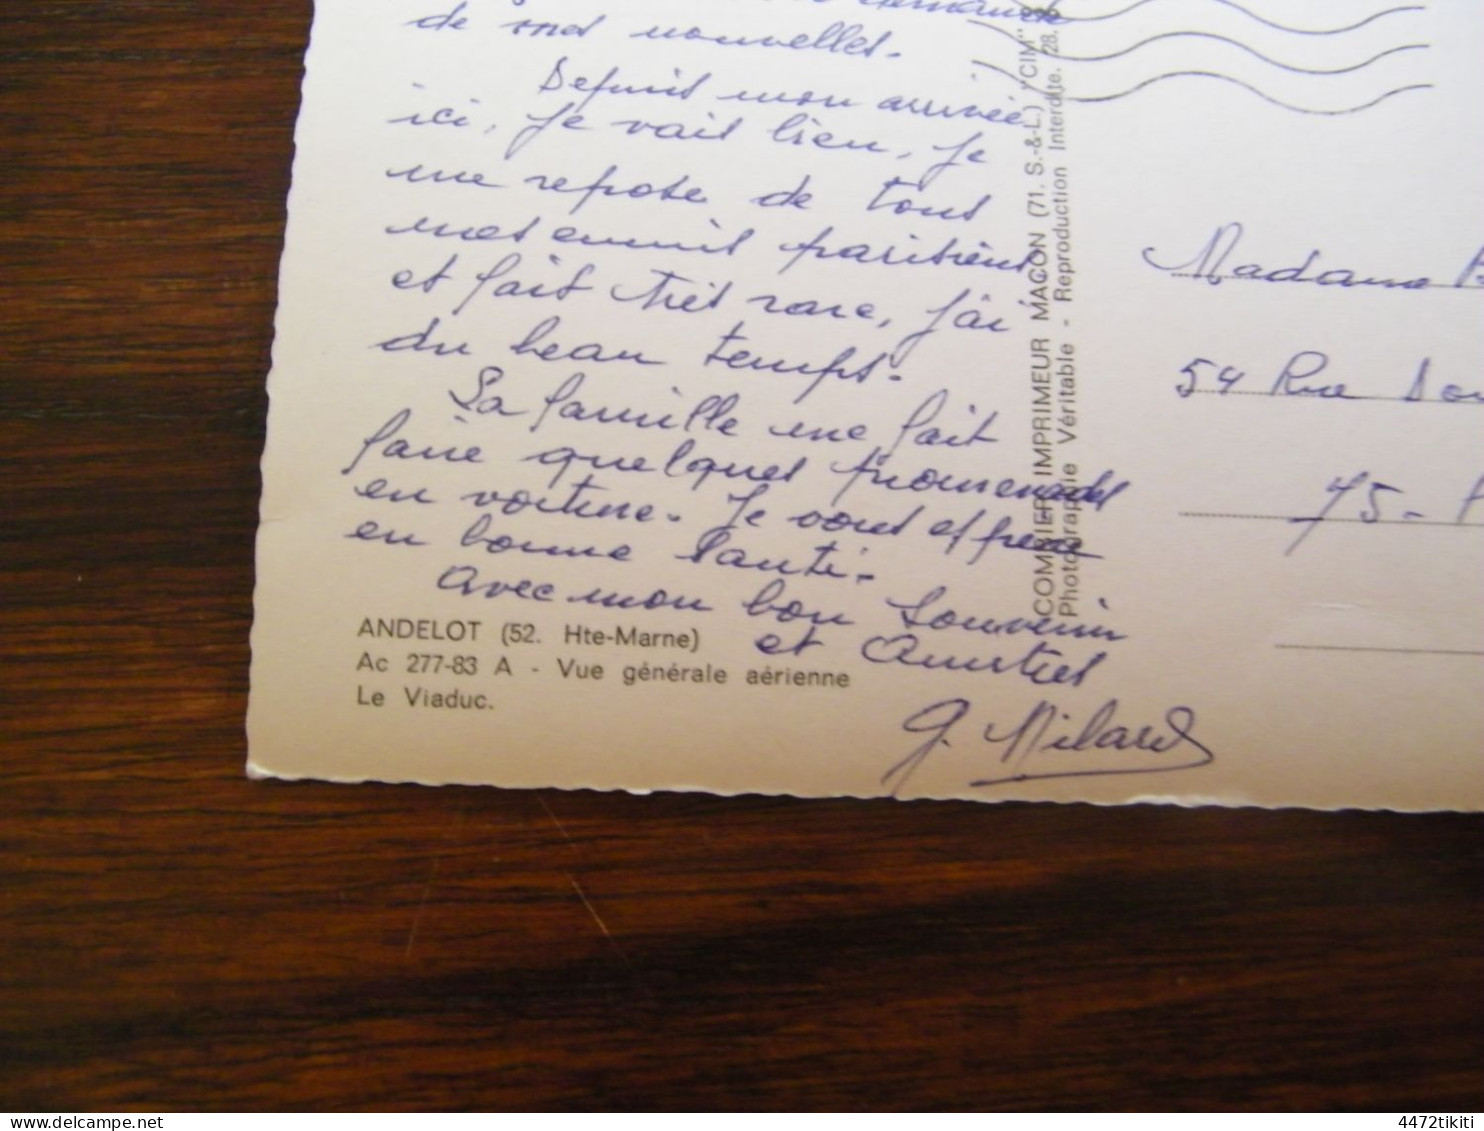 de mes nouvelles.
Depuis mon arrivée
ici, je vais bien, je
me repose de tous
mes ennuis parisiens
et fait très rare, j'ai
du beau temps.
La famille me fait
faire quelques promenades
en voiture. Je vous espère
en bonne santé.
Avec mon bon souvenir
et Amitiés
G. Milard
ANDELOT (52. Hte-Marne)
Ac 277-83 A - Vue générale aérienne
Le Viaduc.
COMBIER IMPRIMEUR MACON (71. S.-&-L.) "CIM"
Photographie Véritable - Reproduction Interdite. 28.
Madame
54 Rue
75 -
4472tikiti
delcampe.net